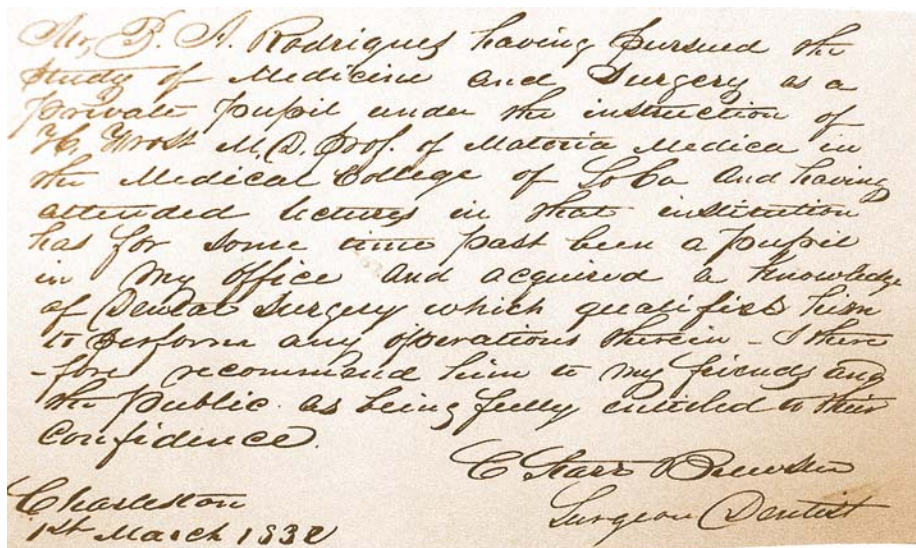 Mr, B. A. Rodrigues having pursued the
study of Medicine and Surgery as a
private pupil under the instruction of
H. Frost M.D. Prof. of Materia Medica in
the Medical College of So Ca and having
attended lectures in that institution
has for some time past been a pupil
in my office and acquired a knowledge
of Dental Surgery which qualifies him
to perform any operations therein - I there
-fore recommend him to my friends and
the public as being fully entitled to their
confidence.
C Starr Brewster
Surgeon Dentist
Charleston
1st March 1832